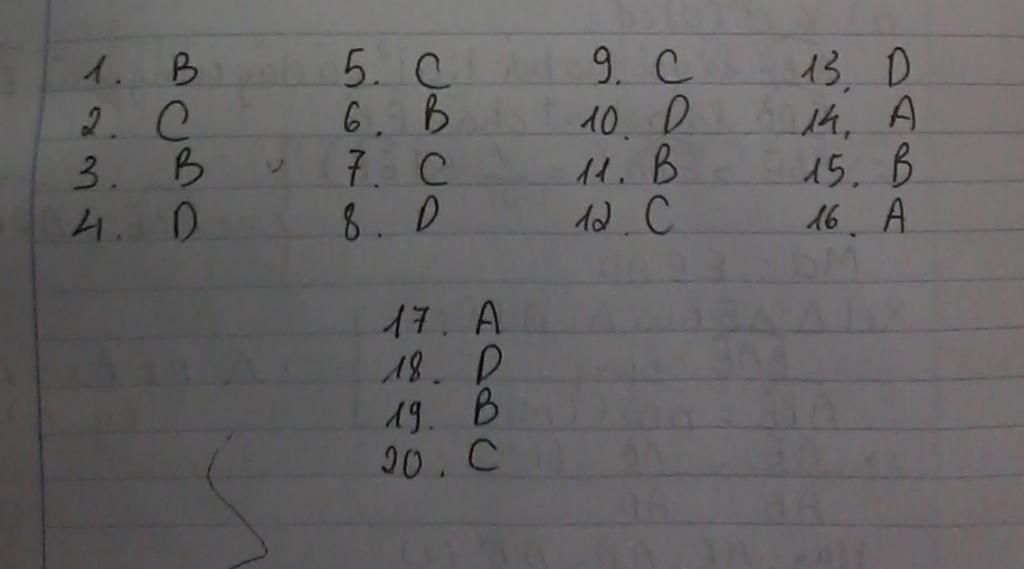 1. B 5. C 9. C 13. D
2. C 6. B 10. D 14. A
3. B 7. C 11. B 15. B
4. D 8. D 12. C 16. A
17. A
18. D
19. B
20. C